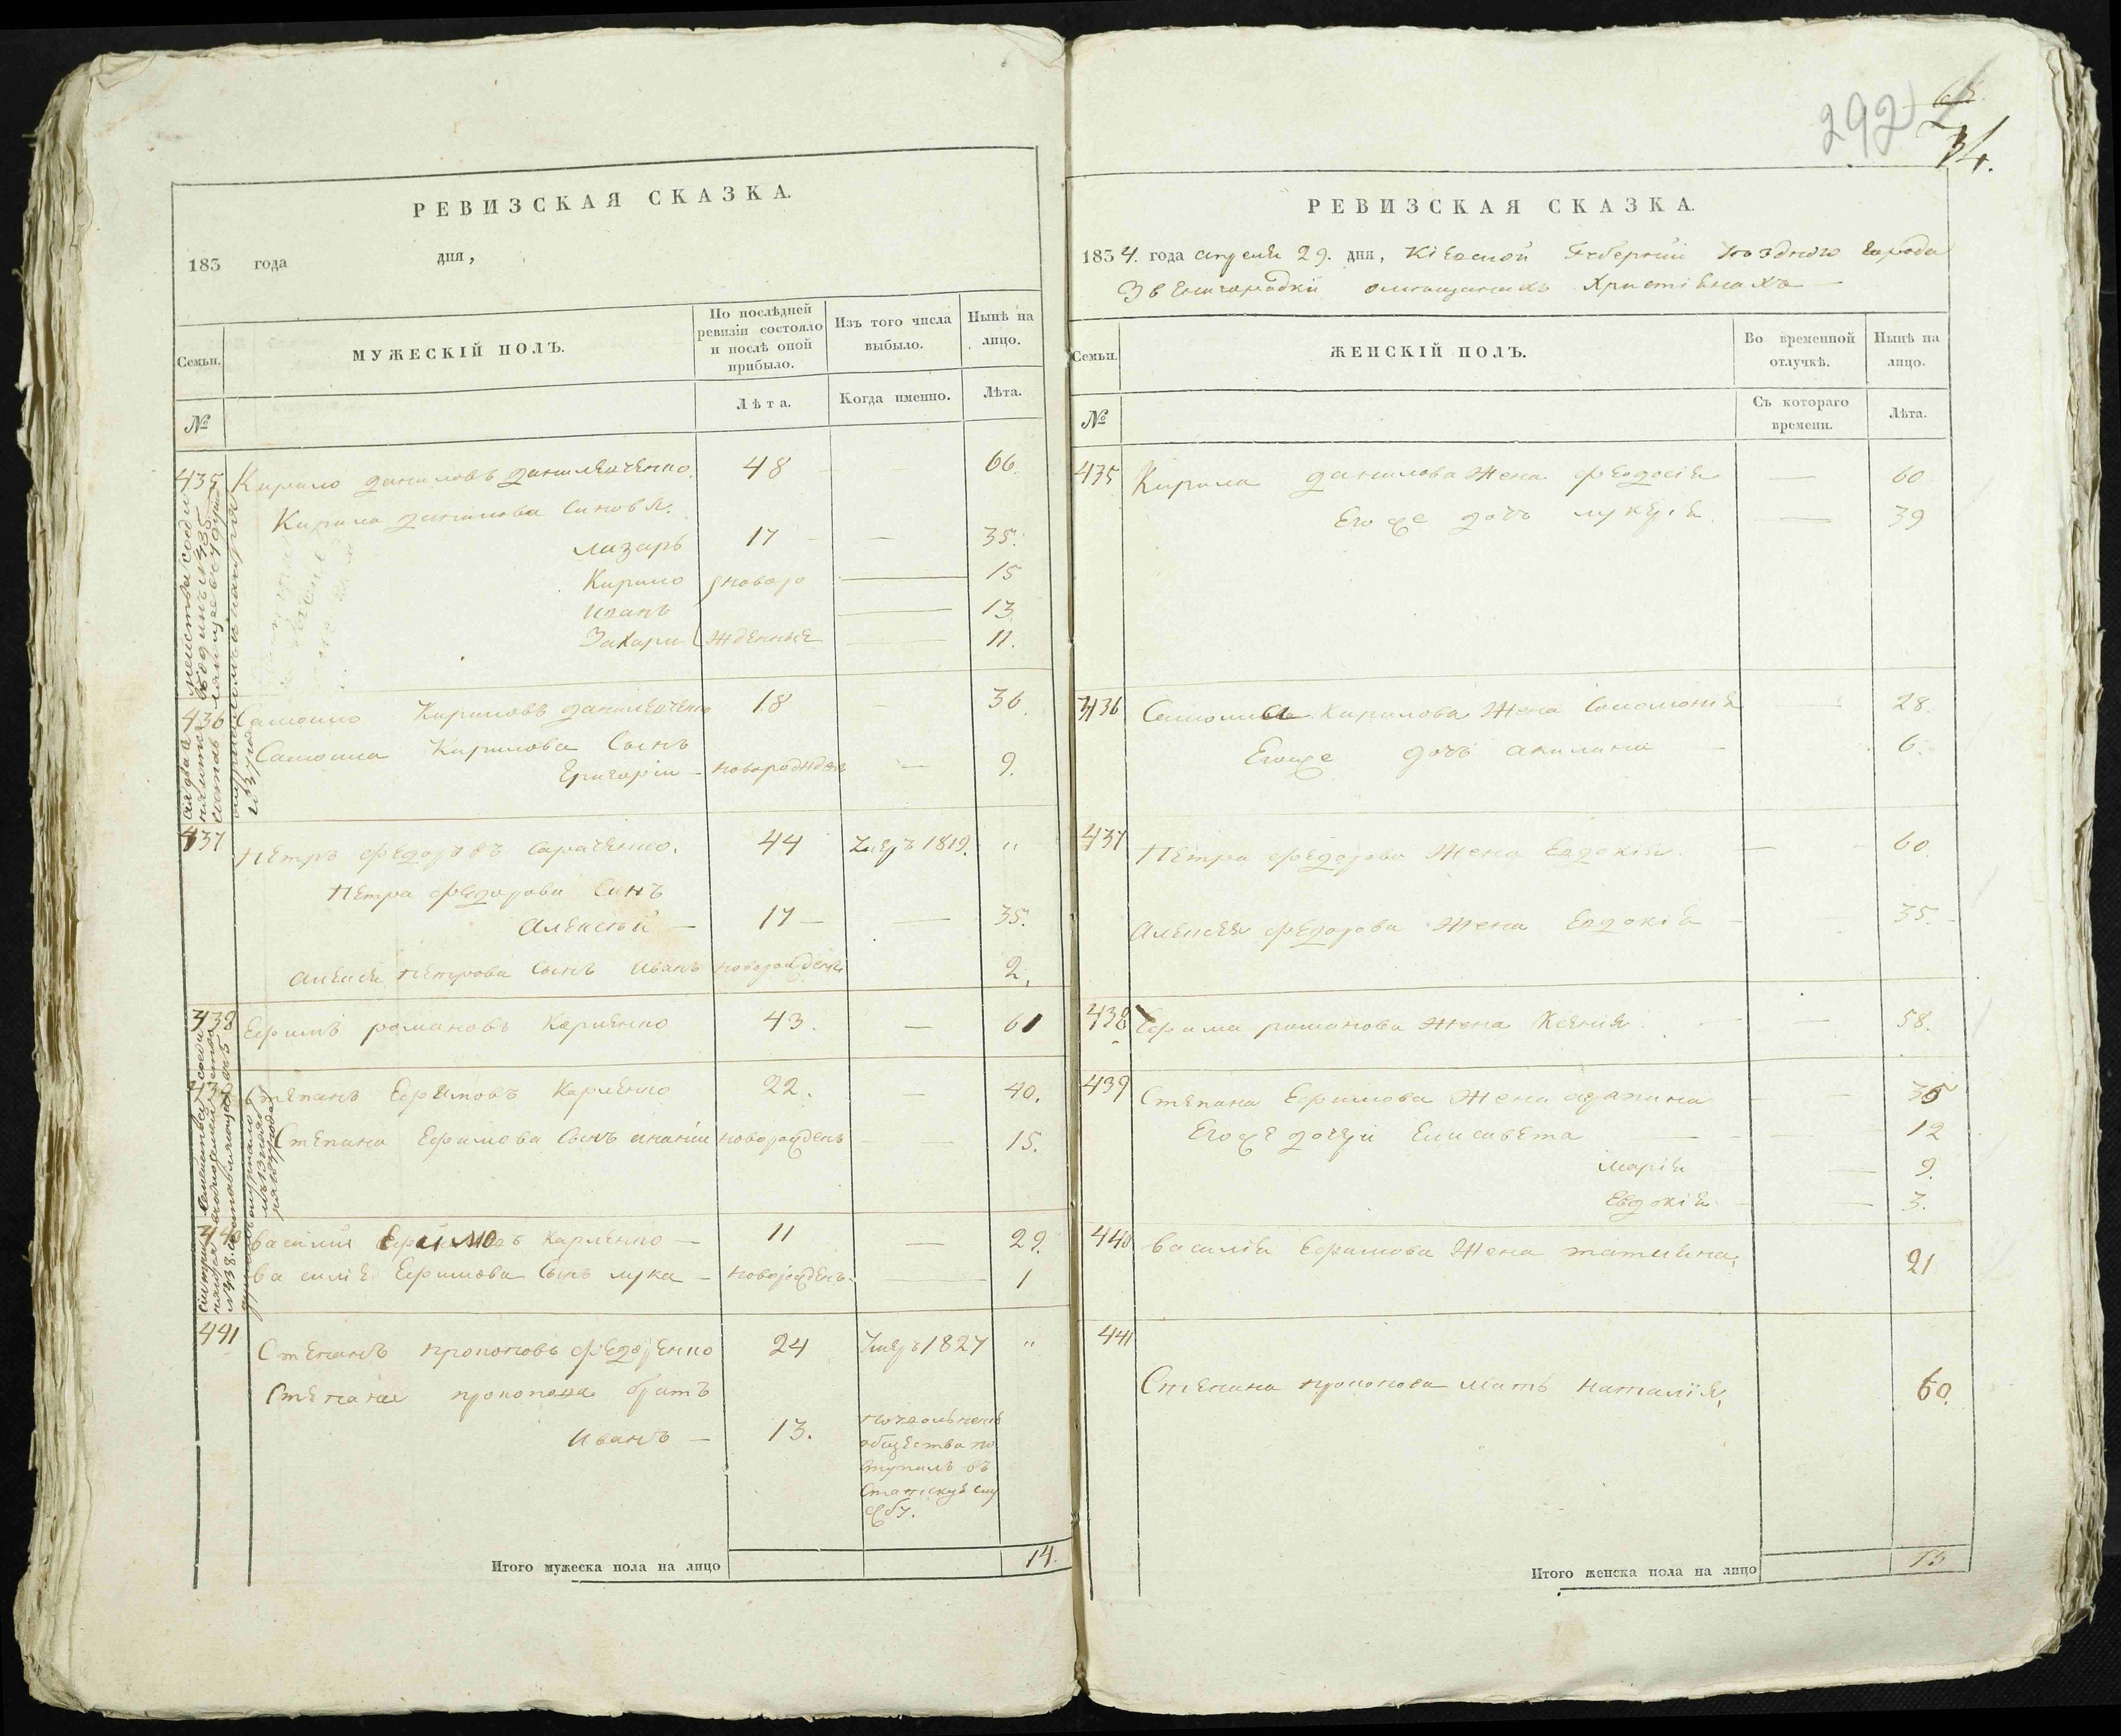 РЕВИЗСКАЯ СКАЗКА.
183 года дня,
Семьи.
МУЖЕСКІЙ ПОЛЪ.
По послѣдней ревизіи состояло и послѣ оной прибыло.
Изъ того числа выбыло.
Нынѣ на лицо.
№
Лѣта.
Когда именно.
Лѣта.
435 Кирило Даниловъ Данилевченко 48 66.
Кирила Данилова Синовья.
Лазарь 17 — 35.
Кирило новоро 15
Иванъ 13
Захари жденные 11.
436 Самоило Кириловъ Данилевченко 18 36.
Самоила Кирилова Сынъ
Григоріи — новорожденъ — 9.
437 Петръ Федоровъ Сараченко. 44 Умеръ 1819. "
Петра Федорова Синъ
Алексѣй — 17 — 35.
Алексея Петрова Сынъ Иванъ новорожденъ 2.
438 Ефимъ Романовъ Карпенко 43. — 61
439 Степанъ Ефимовъ Карпенко 22. — 40.
Степана Ефимова Сынъ Ананіи новорожденъ 15.
440 Василій Ефимовъ Карпенко — 11 — 29.
Василія Ефимова Сынъ Лука — новорожденъ. — 1
441 Степанъ Прокоповъ Федоренко 24 Умеръ 1827 "
Степана Прокопова братъ
Иванъ — 13.
общества по
ступилъ въ
Статскую слу
жбу.
Итого мужеска пола на лицо 14.
292
74.
РЕВИЗСКАЯ СКАЗКА.
1834. года апреля 29. дня, Кіевской Губерніи Уезднаго города
Звенигородки омещанахъ Христіянахъ —
Семьи.
ЖЕНСКІЙ ПОЛЪ.
Во временной отлучкѣ.
Нынѣ на лицо.
№
Съ котораго времени.
Лѣта.
435 Кирила Данилова Жена Феодосія — 60
Егоже дочь Лукерія — 39
436 Самоила Кирилова Жена Соломонія 28.
Егоже дочь Акилина — 6.
437 Петра Федорова Жена Евдокія. — 60.
Алексея Федорова Жена Евдокія — 35.
438 Ефима Романова Жена Ксенія — 58.
439 Степана Ефимова Жена Агафина — 35
Егоже дочери Елисавета — 12
Марія — 9.
Евдокія — 3.
440 Василія Ефимова Жена Татияна, 21
441 Степана Прокопова Мать Наталія, 60.
Итого женска пола на лицо 13